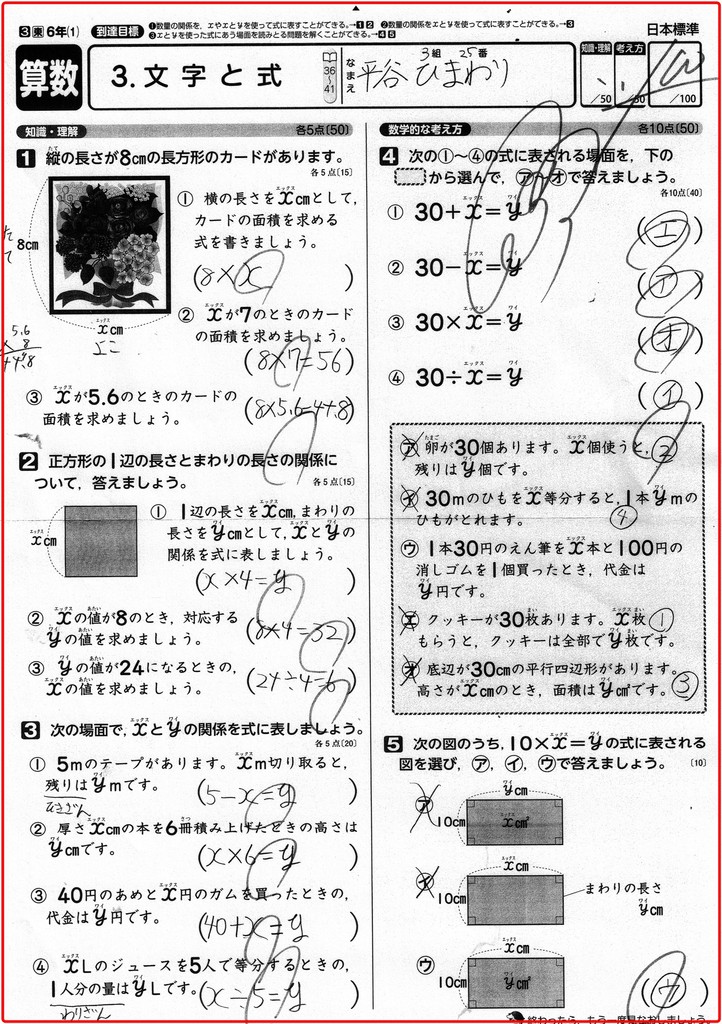 3 東 6年(1) 到達目標 ①数量の関係を,xやyとを使って式に表すことができる。→1 2 ②数量の関係をxとyを使って式に表すことができる。→3
③xとyを使った式にあう場面を読みとる問題を解くことができる。→4 5
日本標準
算数 3.文字と式 36~41 なまえ 3組 25番
平谷 ひまわり
知識・理解 /50 考え方 /50 /100
知識・理解 各5点〔50〕
1 縦の長さが8cmの長方形のカードがあります。
各5点〔15〕
8cm
xcm
よこ
5.6
×8
44.8
① 横の長さをxcmとして,
カードの面積を求める
式を書きましょう。
(8×x)
② xが7のときのカード
の面積を求めましょう。
(8×7=56)
③ xが5.6のときのカードの
面積を求めましょう。
(8×5.6=44.8)
2 正方形の1辺の長さとまわりの長さの関係に
ついて,答えましょう。
各5点〔15〕
xcm
① 1辺の長さをxcm,まわりの
長さをycmとして,xとyの
関係を式に表しましょう。
(x×4=y)
② xの値が8のとき,対応する
yの値を求めましょう。
(8×4=32)
③ yの値が24になるときの,
xの値を求めましょう。
(24÷4=6)
3 次の場面で,xとyの関係を式に表しましょう。
各5点〔20〕
① 5mのテープがあります。xm切り取ると,
残りはymです。
ひきざん
(5-x=y)
② 厚さxcmの本を6冊積み上げたときの高さは
ycmです。
(x×6=y)
③ 40円のあめとx円のガムを買ったときの,
代金はy円です。
(40+x=y)
④ xLのジュースを5人で等分するときの,
1人分の量はyLです。
わりざん
(x÷5=y)
数学的な考え方 各10点〔50〕
4 次の①~④の式に表される場面を,下の
から選んで,㋐~㋔で答えましょう。
各10点〔40〕
① 30+x=y
(エ)
② 30-x=y
(ア)
③ 30×x=y
(オ)
④ 30÷x=y
(イ)
㋐ 卵が30個あります。x個使うと, ②
残りはy個です。
㋑ 30mのひもをx等分すると,1本ymの
ひもがとれます。 ④
㋒ 1本30円のえん筆をx本と100円の
消しゴムを1個買ったとき,代金は
y円です。
㋓ クッキーが30枚あります。x枚 ①
もらうと,クッキーは全部でy枚です。
㋔ 底辺が30cmの平行四辺形があります。
高さがxcmのとき,面積はycm²です。 ③
5 次の図のうち,10×x=yの式に表される
図を選び,㋐,㋑,㋒で答えましょう。 〔10〕
㋐ ycm
10cm xcm²
㋑ xcm
10cm まわりの長さ
ycm
㋒ xcm
10cm ycm²
(ウ)
終わったら,もう一度見なおしましょう。